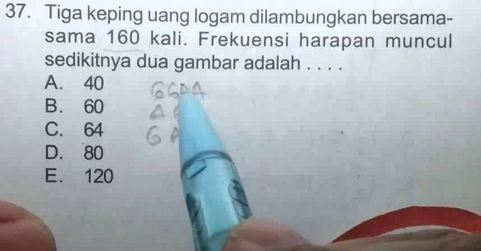 37. Tiga keping uang logam dilambungkan bersama-
sama 160 kali. Frekuensi harapan muncul
sedikitnya dua gambar adalah . . . .
A. 40
B. 60
C. 64
D. 80
E. 120
G G A A
A
G A